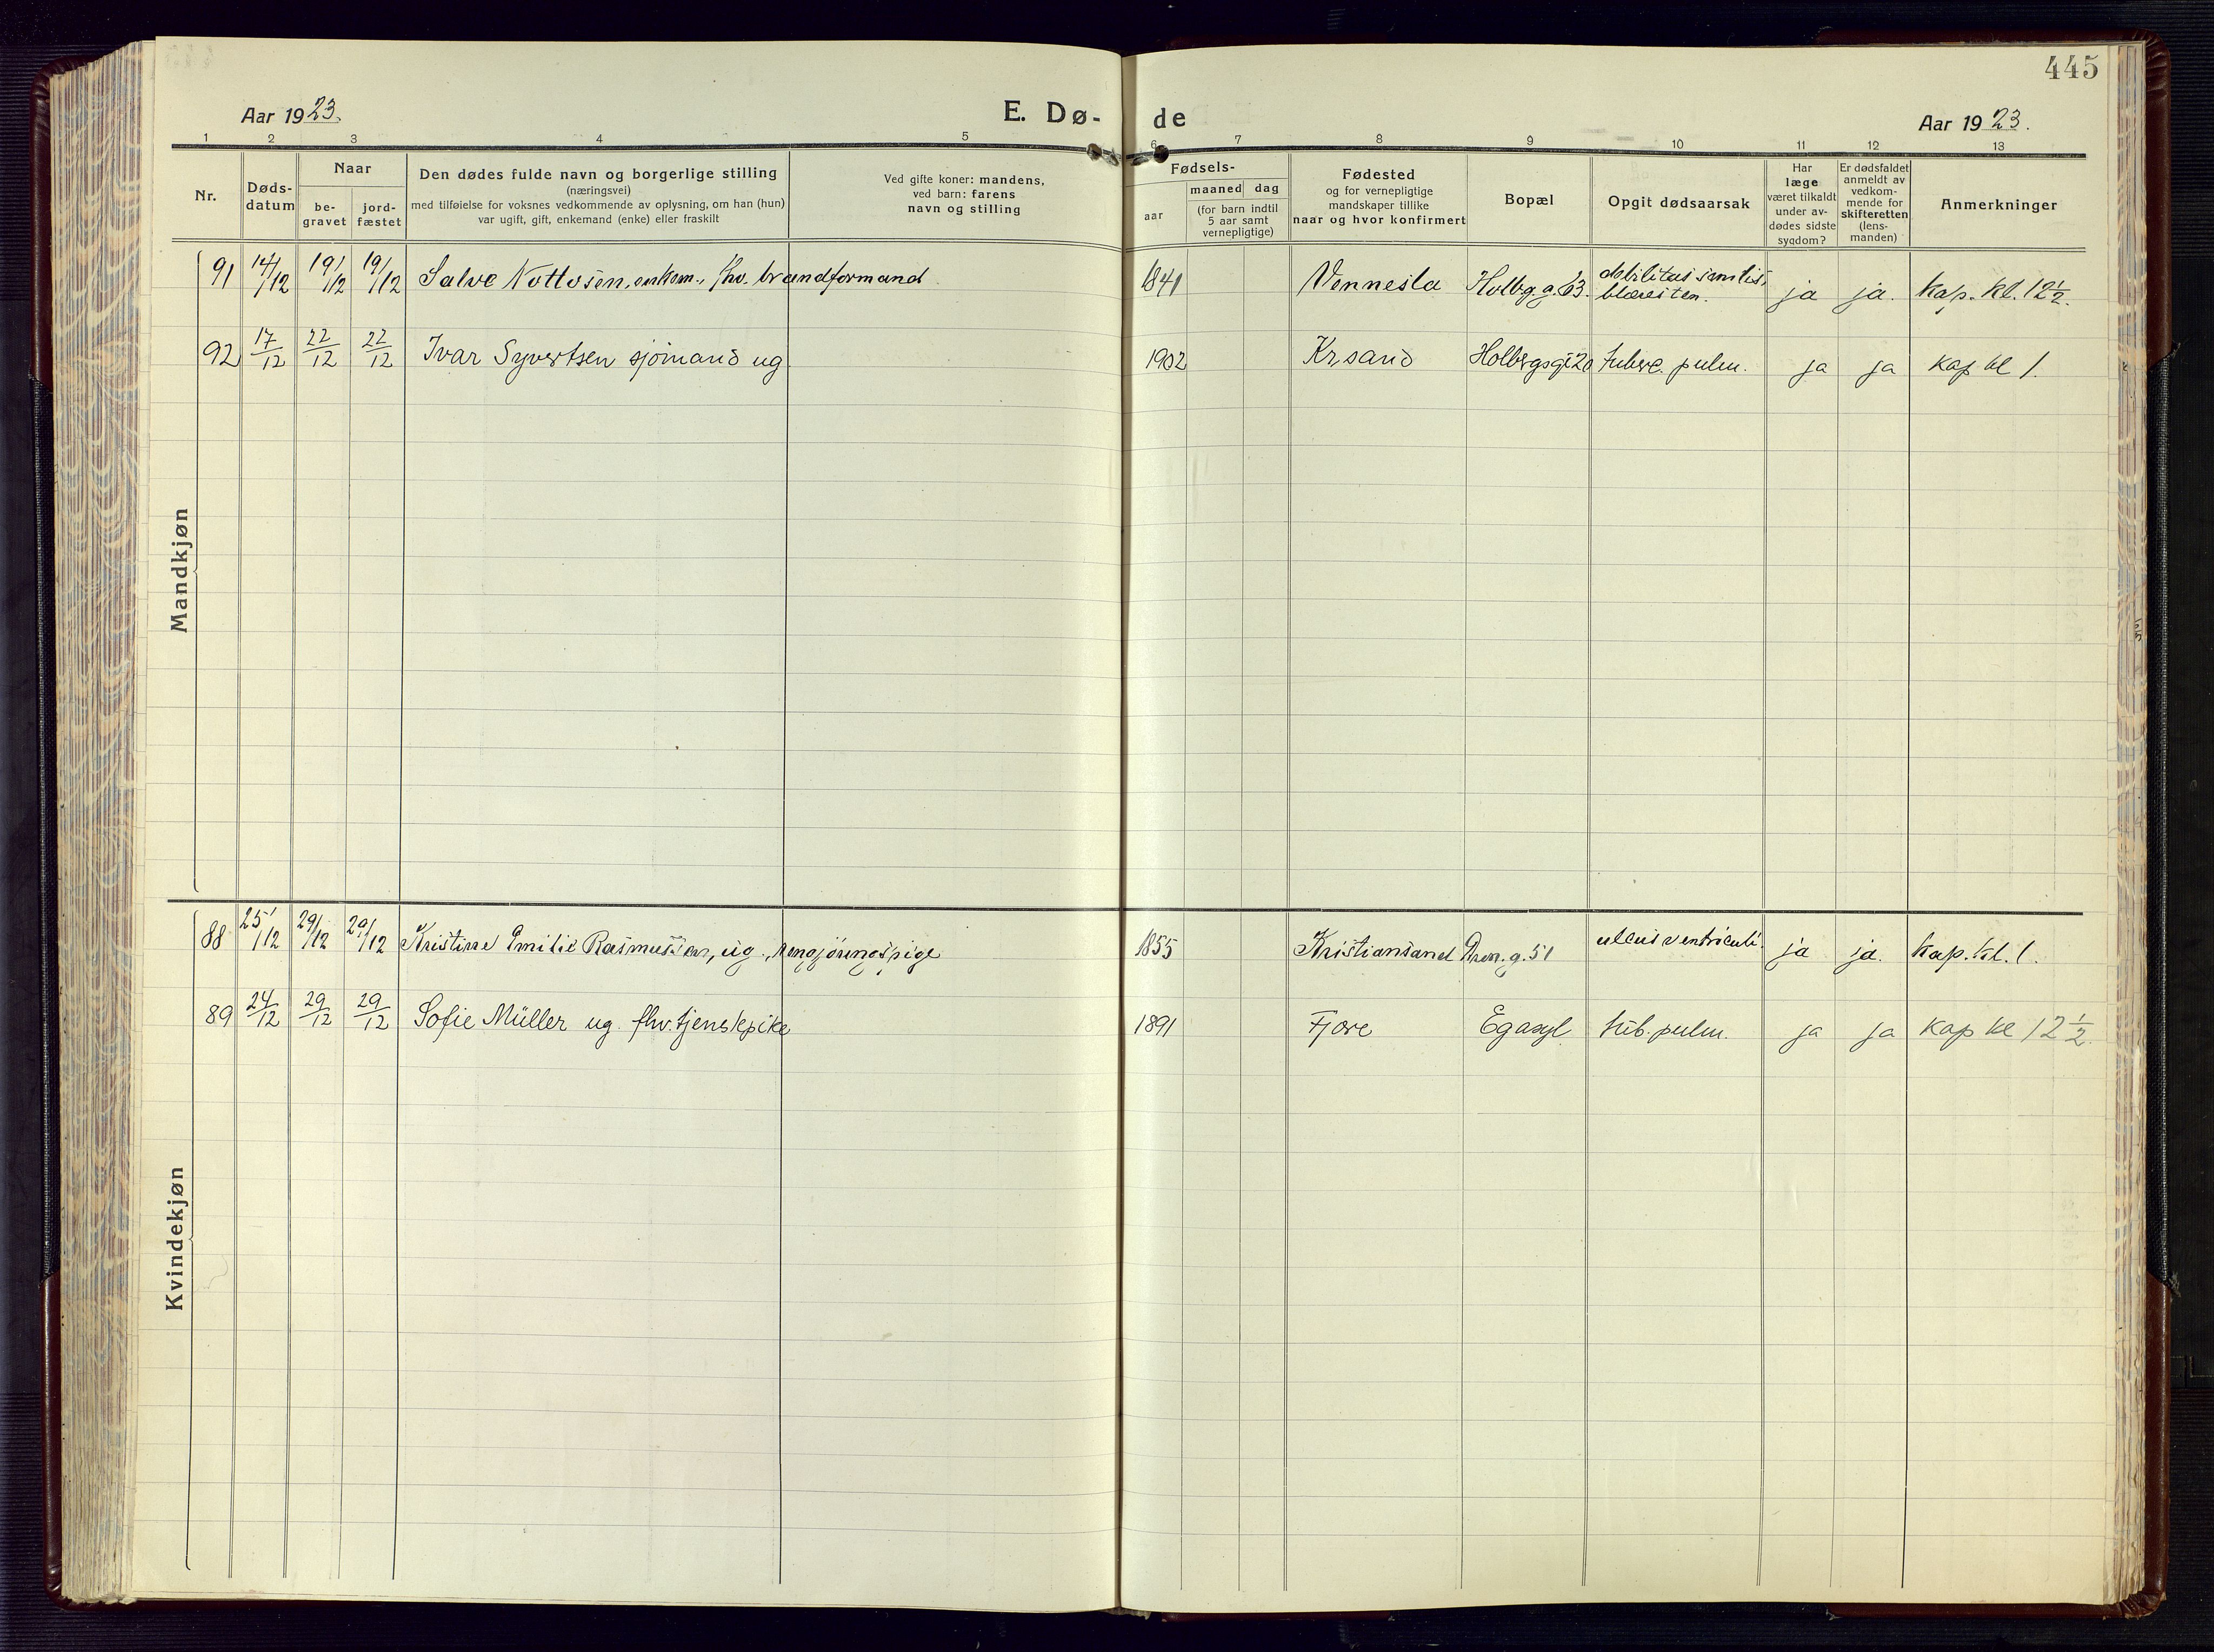 445
Aar 1923.
E. Dø-
de
Aar 1923.
1 2 3 4 5 6 7 8 9 10 11 12 13
Nr.
Døds-
datum
Naar
be-
gravet
jord-
fæstet
Den dødes fulde navn og borgerlige stilling
(næringsvei)
med tilføielse for voksnes vedkommende av oplysning, om han (hun)
var ugift, gift, enkemand (enke) eller fraskilt
Ved gifte koner: mandens,
ved barn: farens
navn og stilling
Fødsels-
aar
maaned dag
(for barn indtil
5 aar samt
vernepligtige)
Fødested
og for vernepligtige
mandskaper tillike
naar og hvor konfirmert
Bopæl
Opgit dødsaarsak
Har
læge
været tilkaldt
under av-
dødes sidste
sygdom?
Er dødsfaldet
anmeldt av
vedkom-
mende for
skifteretten
(lens-
manden)
Anmerkninger
Mandkjøn
91 14/12 19/12 19/12 Salve Nottosen, enkem., fhv. brandformand 1841 Vennesla Holbg.g. 63. debilitas senilis, ja ja. kap. kl. 12½.
blæresten.
92 17/12 22/12 22/12 Ivar Syvertsen sjömand ug 1902 Kr.sand Holbergsgt 20 tuberc. pulm. ja ja kap kl 1.
Kvindekjøn
88 25/12 29/12 29/12 Kristine Emilie Rasmussen, ug., rengjöringspige 1855 Kristiansand Dron.g. 51 ulcus ventriculi. ja ja. kap. kl. 1.
89 24/12 29/12 29/12 Sofie Müller ug. fhv. tjenstpike 1891 Fjære Egasyl tub. pulm. ja ja kap kl 12½.